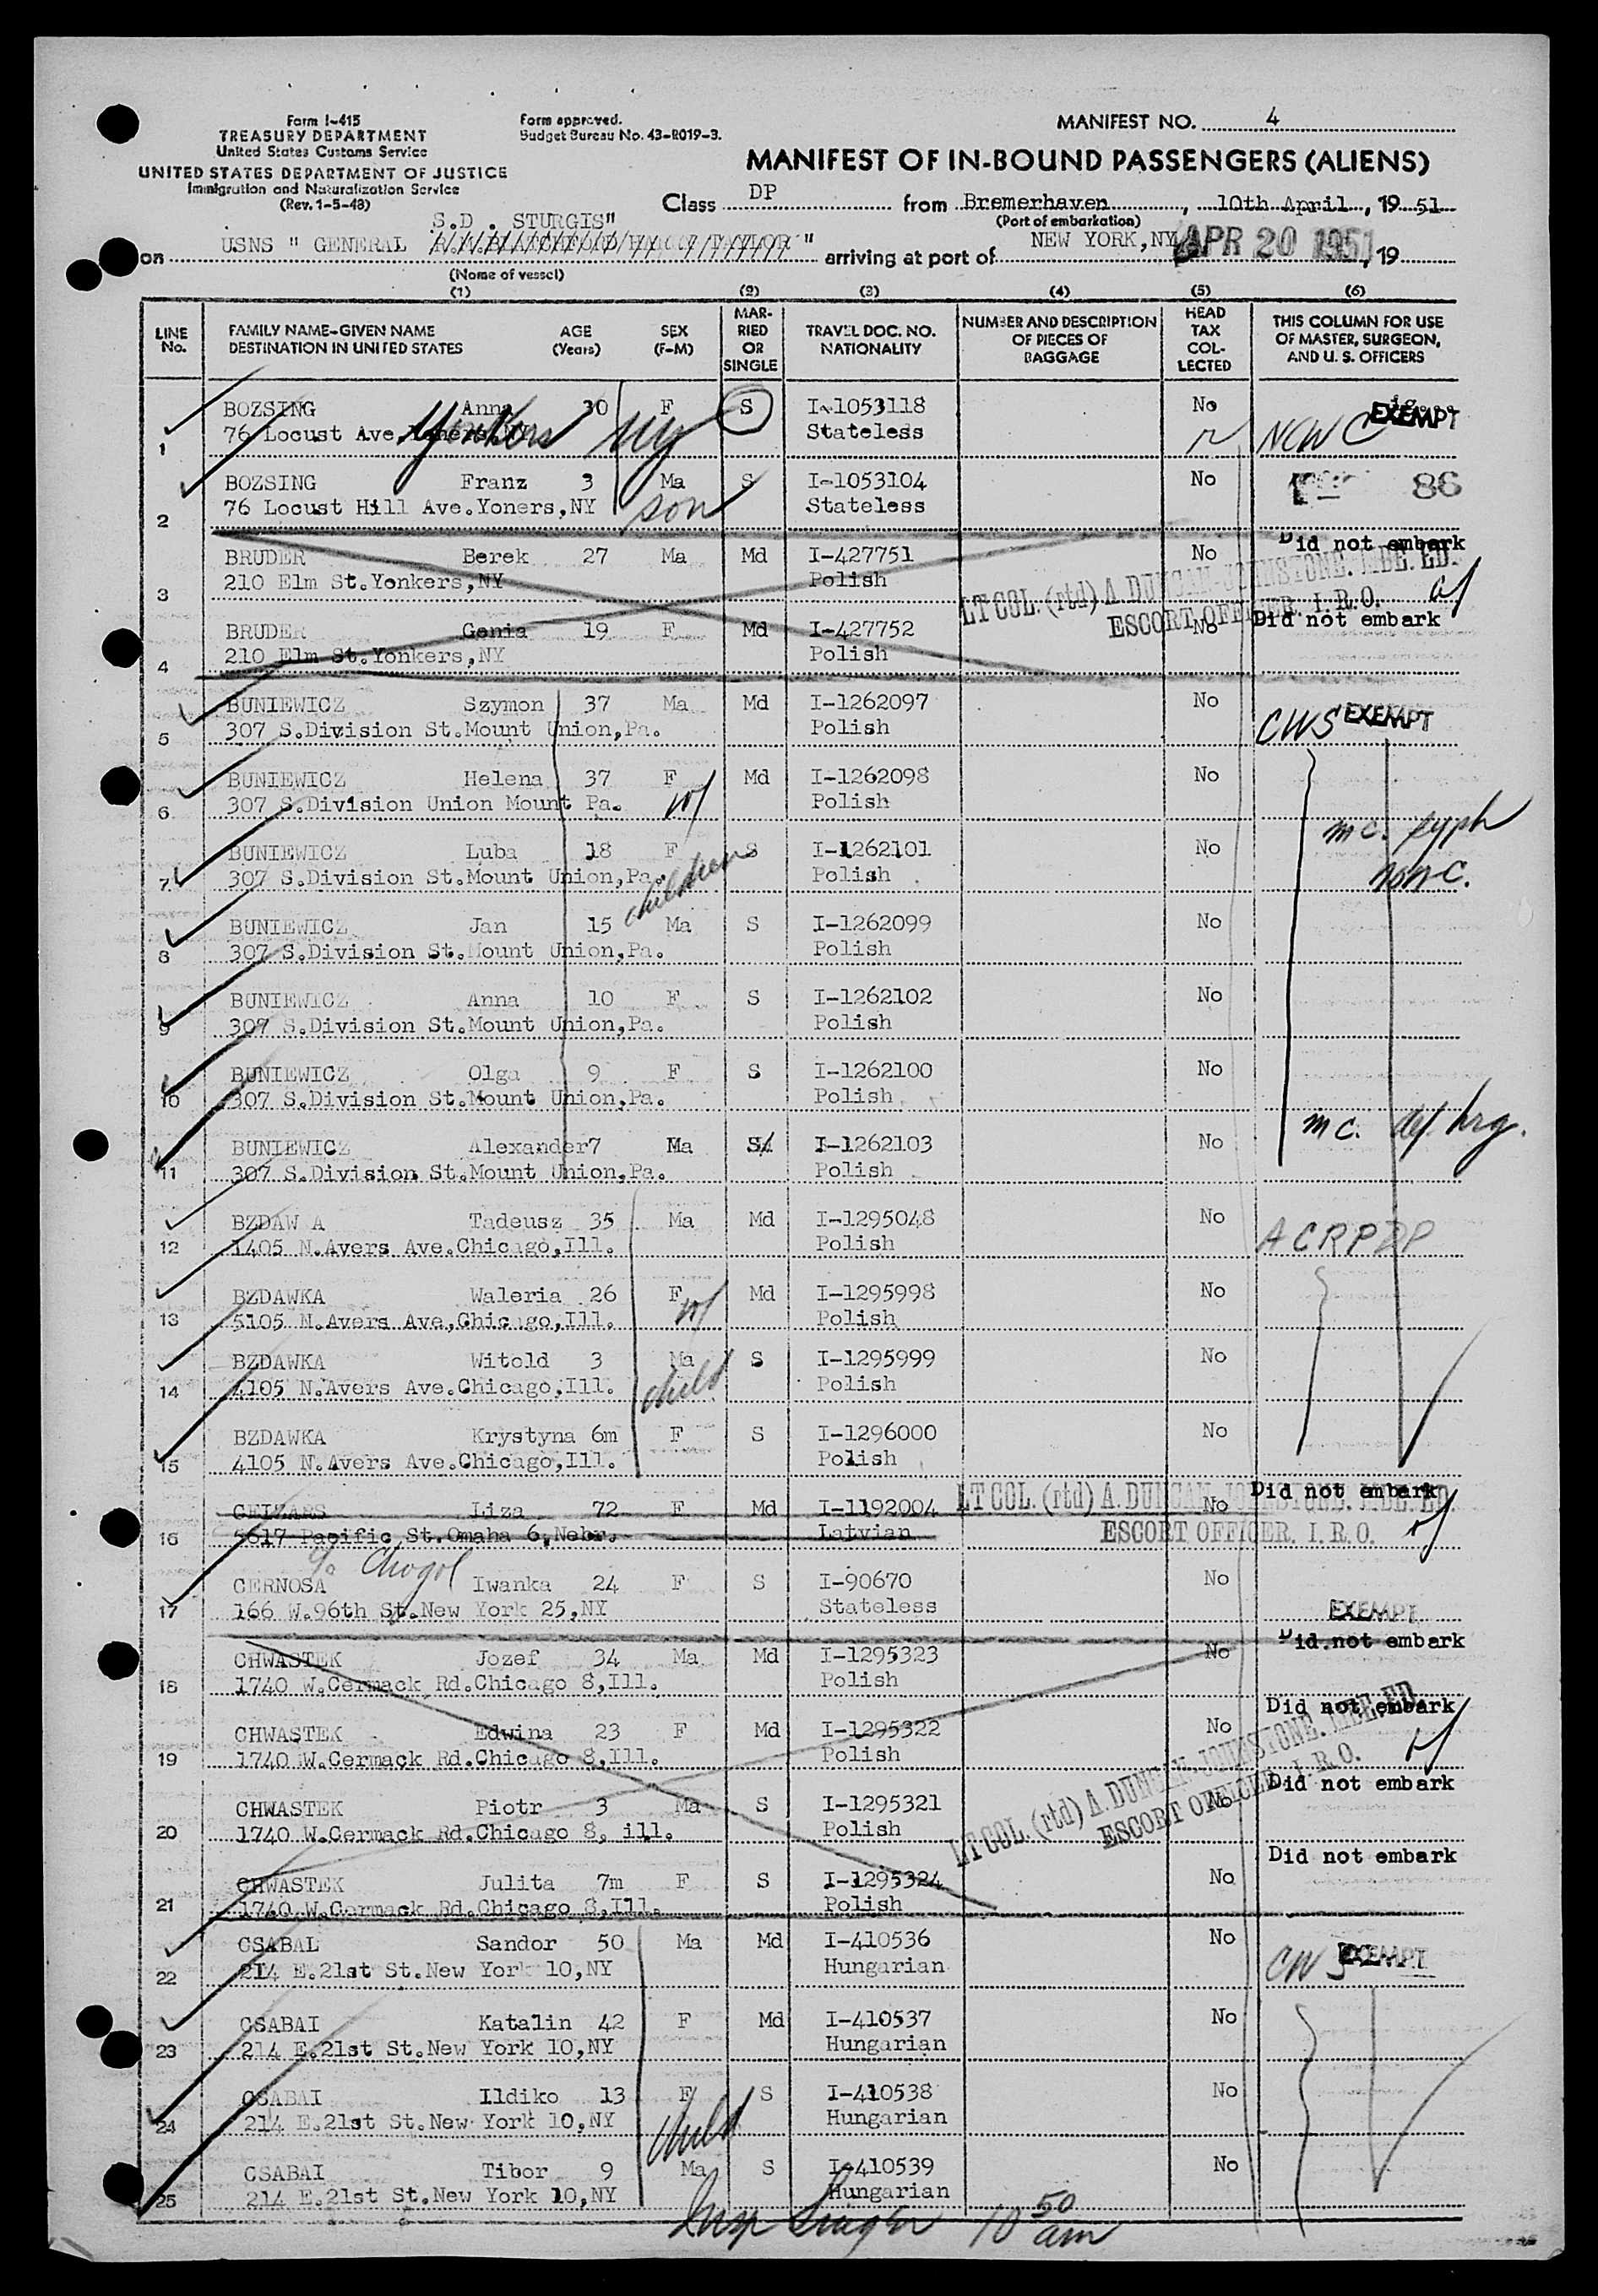 Form I-415
TREASURY DEPARTMENT
United States Customs Service
UNITED STATES DEPARTMENT OF JUSTICE
Immigration and Naturalization Service
(Rev. 1-5-48)
Form approved.
Budget Bureau No. 43-R019-3.
MANIFEST NO. 4
MANIFEST OF IN-BOUND PASSENGERS (ALIENS)
Class DP from Bremerhaven, 10th April, 19 51
(Port of embarkation)
S.D. STURGIS"
on USNS " GENERAL " arriving at port of NEW YORK, NY APR 20 1951, 19
(Name of vessel)
(1) (2) (3) (4) (5) (6)
LINE No. FAMILY NAME-GIVEN NAME DESTINATION IN UNITED STATES AGE (Years) SEX (F-M) MARRIED OR SINGLE TRAVEL DOC. NO. NATIONALITY NUMBER AND DESCRIPTION OF PIECES OF BAGGAGE HEAD TAX COLLECTED THIS COLUMN FOR USE OF MASTER, SURGEON, AND U. S. OFFICERS
BOZSING Anna 30 F S I-1053118 No EXEMPT
1 76 Locust Ave. Yonkers NY Stateless NCWC
BOZSING Franz 3 Ma S I-1053104 No 86
2 76 Locust Hill Ave.Yoners,NY son Stateless
BRUDER Berek 27 Ma Md I-427751 No Did not embark
3 210 Elm St.Yonkers,NY Polish
LT COL. (rtd) A. DUNCAN-JOHNSTONE. MBE. ED.
ESCORT OFFICER. I.R.O.
BRUDER Genia 19 F Md I-427752 No Did not embark
4 210 Elm St.Yonkers,NY Polish
BUNIEWICZ Szymon 37 Ma Md I-1262097 No
5 307 S.Division St.Mount Union,Pa. Polish CWS EXEMPT
BUNIEWICZ Helena 37 F Md I-1262098 No
6 307 S.Division Union Mount Pa. wf Polish
mc. syph
BUNIEWICZ Luba 18 F S I-1262101 No
7 307 S.Division St.Mount Union,Pa. children Polish non c.
BUNIEWICZ Jan 15 Ma S I-1262099 No
8 307 S.Division St.Mount Union,Pa. Polish
BUNIEWICZ Anna 10 F S I-1262102 No
9 307 S.Division St.Mount Union,Pa. Polish
BUNIEWICZ Olga 9 F S I-1262100 No
10 307 S.Division St.Mount Union,Pa. Polish
mc. def. hrg.
BUNIEWICZ Alexander7 Ma S I-1262103 No
11 307 S.Division St.Mount Union,Pa. Polish
BZDAW A Tadeusz 35 Ma Md I-1295048 No
12 1405 N.Avers Ave.Chicago,Ill. Polish ACRPDP
BZDAWKA Waleria 26 F Md I-1295998 No
13 5105 N.Avers Ave,Chicago,Ill. wf Polish
BZDAWKA Witold 3 Ma S I-1295999 No
14 4105 N.Avers Ave.Chicago,Ill. child Polish
BZDAWKA Krystyna 6m F S I-1296000 No
15 4105 N.Avers Ave.Chicago,Ill. Polish
Liza 72 F Md I-1192004 No Did not embark
16 5617 Pacific St.Omaha 6,Nebr. Latvian
LT COL. (rtd) A. DUNCAN-JOHNSTONE. MBE. ED.
ESCORT OFFICER. I.R.O.
c/o Chogol
CERNOSA Iwanka 24 F S I-90670 No
17 166 W.96th St.New York 25,NY Stateless EXEMPT
CHWASTEK Jozef 34 Ma Md I-1295323 No Did not embark
18 1740 W.Cermack Rd.Chicago 8,Ill. Polish
CHWASTEK Edwina 23 F Md I-1295322 No Did not embark
19 1740 W.Cermack Rd.Chicago 8,Ill. Polish
LT COL. (rtd) A. DUNCAN-JOHNSTONE. MBE. ED.
ESCORT OFFICER. I.R.O.
CHWASTEK Piotr 3 Ma S I-1295321 No Did not embark
20 1740 W.Cermack Rd.Chicago 8, ill. Polish
CHWASTEK Julita 7m F S I-1295324 No Did not embark
21 1740 W.Cermack Rd.Chicago 8,Ill. Polish
CSABAL Sandor 50 Ma Md I-410536 No
22 214 E.21st St.New York 10,NY Hungarian CWS EXEMPT
CSABAI Katalin 42 F Md I-410537 No
23 214 E.21st St.New York 10,NY Hungarian
CSABAI Ildiko 13 F S I-410538 No
24 214 E.21st St.New York 10,NY child Hungarian
CSABAI Tibor 9 Ma S I-410539 No
25 214 E.21st St.New York 10,NY Hungarian
Insp Singer 10 50 am